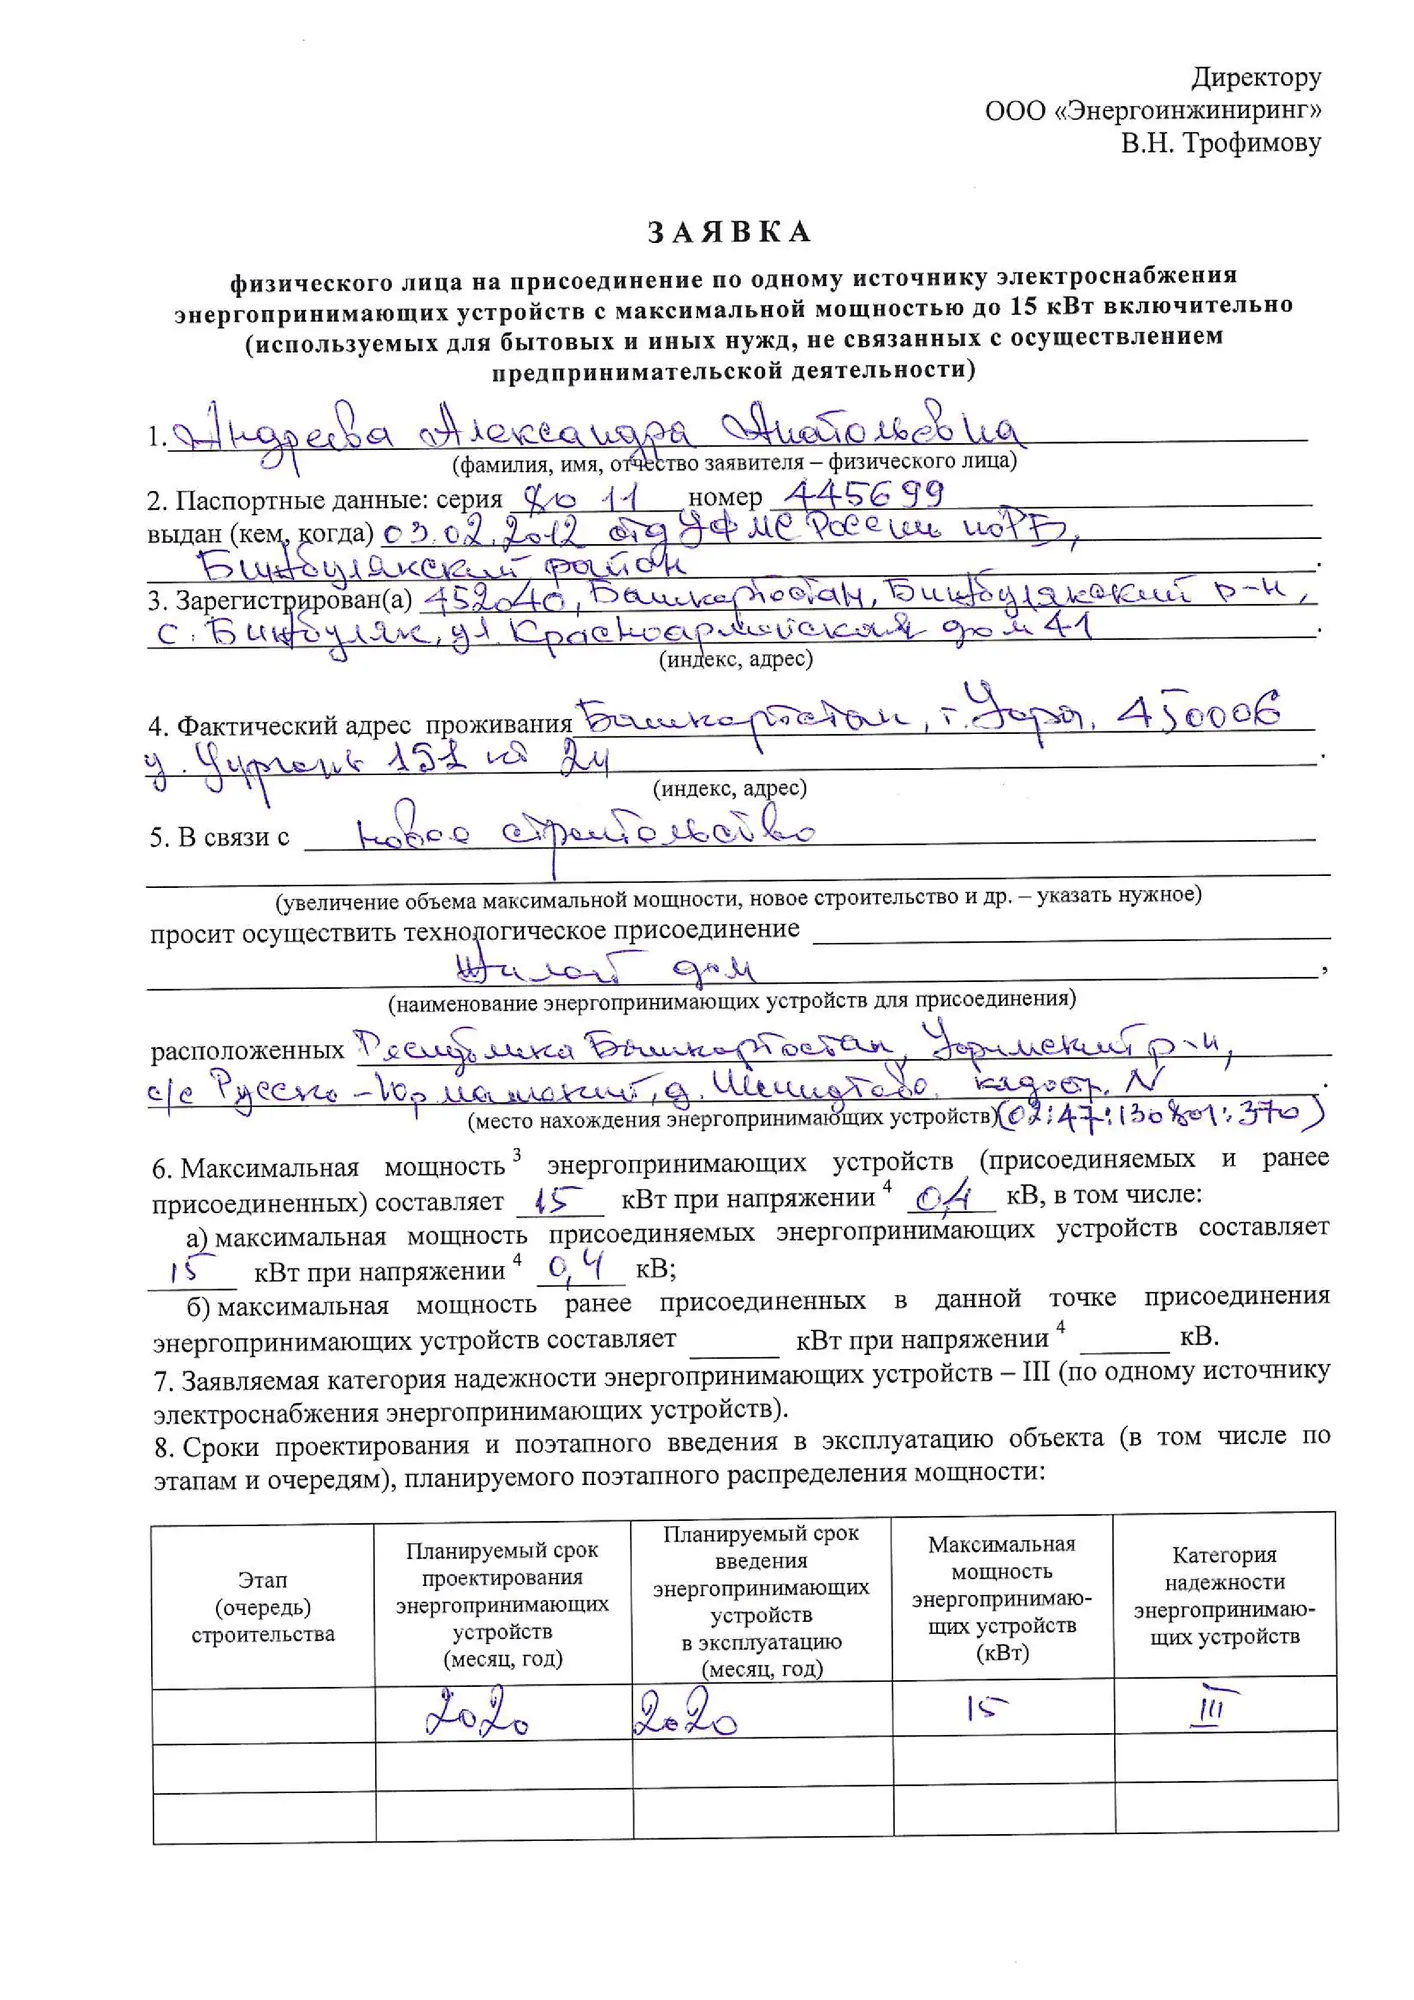 Директору
ООО «Энергоинжиниринг»
В.Н. Трофимову
ЗАЯВКА
физического лица на присоединение по одному источнику электроснабжения
энергопринимающих устройств с максимальной мощностью до 15 кВт включительно
(используемых для бытовых и иных нужд, не связанных с осуществлением
предпринимательской деятельности)
1. Андреева Александра Анатольевна
(фамилия, имя, отчество заявителя – физического лица)
2. Паспортные данные: серия 80 11 номер 445699
выдан (кем, когда) 03.02.2012 отд УФМС России по РБ,
Бижбулякский район
3. Зарегистрирован(а) 452040, Башкортостан, Бижбулякский р-н,
с. Бижбуляк, ул. Красноармейская дом 41
(индекс, адрес)
4. Фактический адрес проживания Башкортостан, г. Уфа, 450006
у. Цюрупы 151 кв 24
(индекс, адрес)
5. В связи с новое строительство
(увеличение объема максимальной мощности, новое строительство и др. – указать нужное)
просит осуществить технологическое присоединение
Жилой дом,
(наименование энергопринимающих устройств для присоединения)
расположенных Республика Башкортостан, Уфимский р-н,
с/с Русско-Юрмашский, д. Шамидтово. кадастр. N.
(место нахождения энергопринимающих устройств) (02:47:130801:370)
6. Максимальная мощность 3 энергопринимающих устройств (присоединяемых и ранее
присоединенных) составляет 15 кВт при напряжении 4 0,4 кВ, в том числе:
а) максимальная мощность присоединяемых энергопринимающих устройств составляет
15 кВт при напряжении 4 0,4 кВ;
б) максимальная мощность ранее присоединенных в данной точке присоединения
энергопринимающих устройств составляет кВт при напряжении 4 кВ.
7. Заявляемая категория надежности энергопринимающих устройств – III (по одному источнику
электроснабжения энергопринимающих устройств).
8. Сроки проектирования и поэтапного введения в эксплуатацию объекта (в том числе по
этапам и очередям), планируемого поэтапного распределения мощности:
Этап
(очередь)
строительства
Планируемый срок
проектирования
энергопринимающих
устройств
(месяц, год)
Планируемый срок
введения
энергопринимающих
устройств
в эксплуатацию
(месяц, год)
Максимальная
мощность
энергопринимаю-
щих устройств
(кВт)
Категория
надежности
энергопринимаю-
щих устройств
2020 2020 15 III